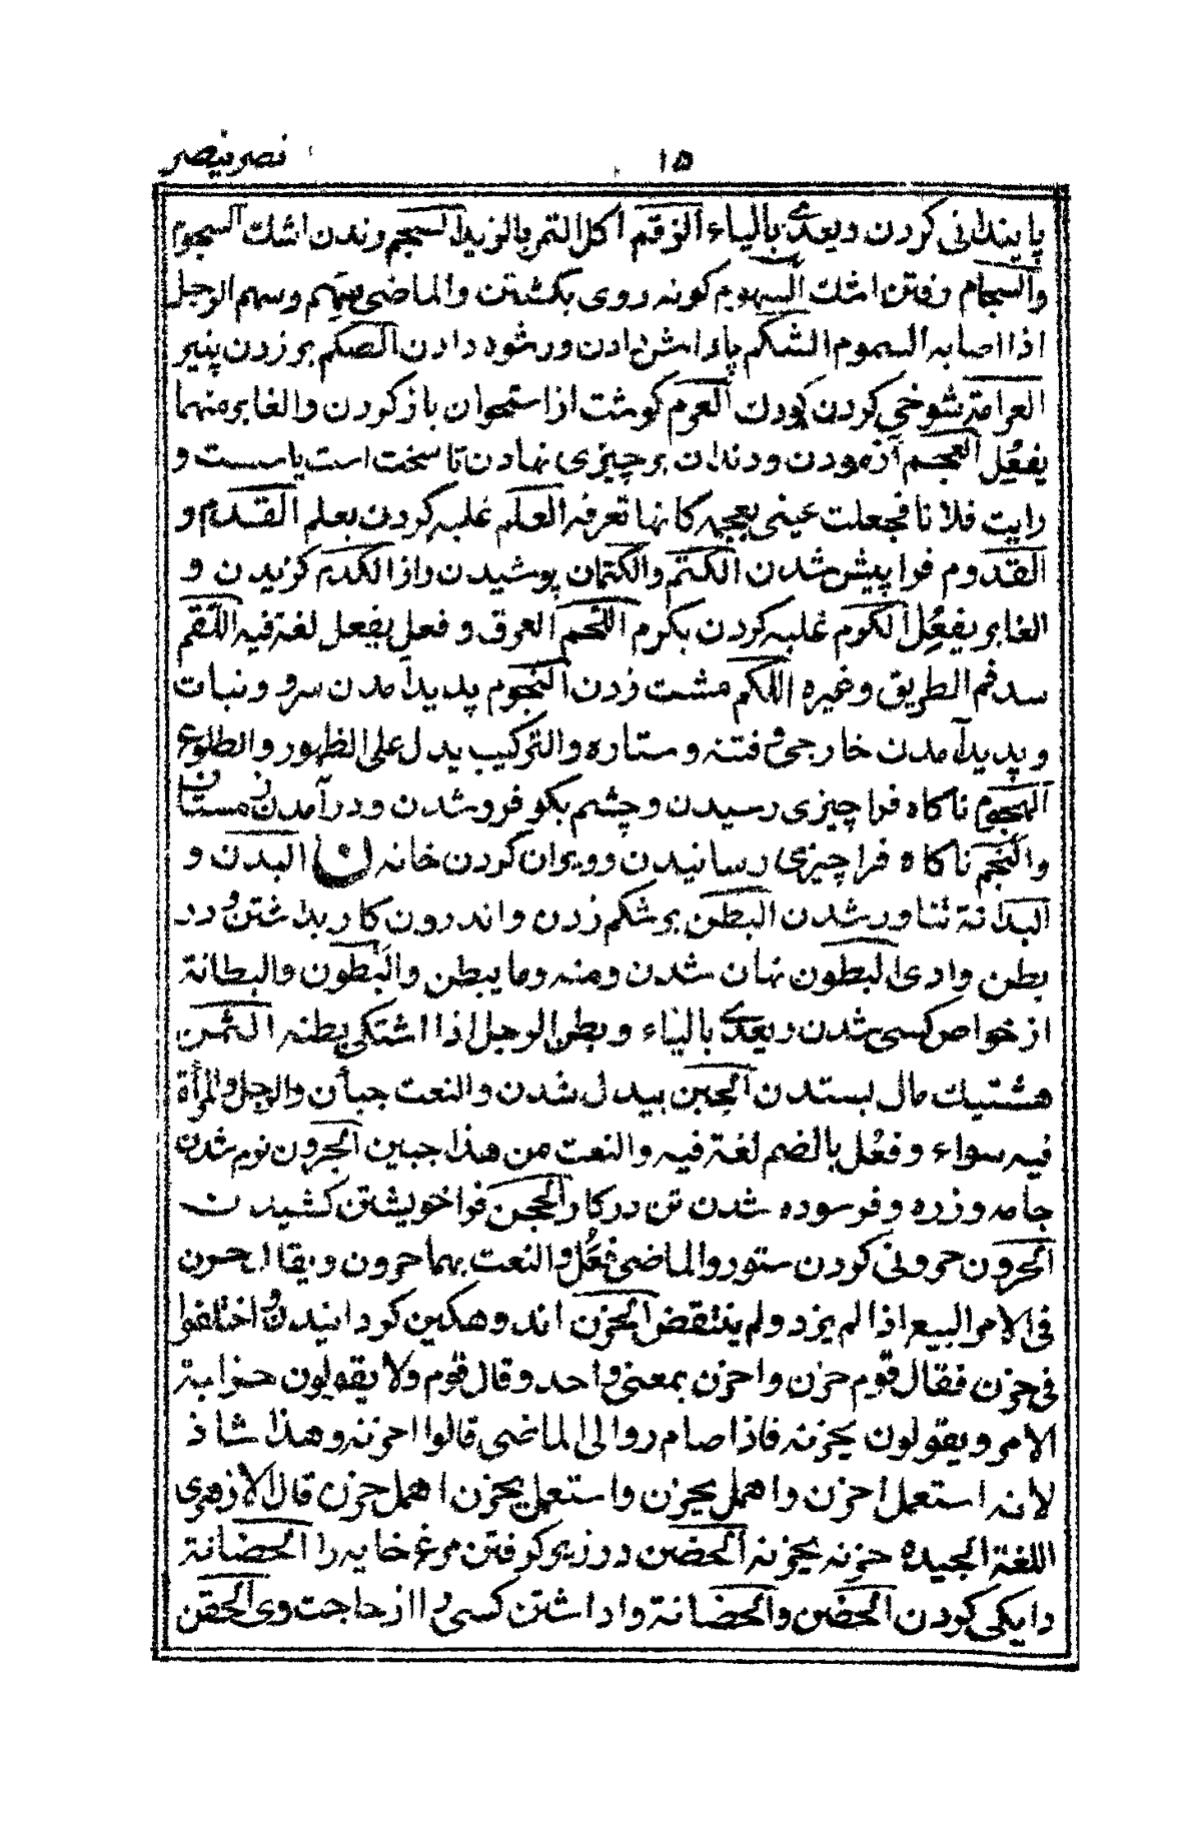 نصر ینصر ۱۵
پایندانی کردن ویعدی بالیاء الزقم اکل التمر بالزبد السجم وندن اشك السجوم
والسجام رفتن اشك السهوم کونه روی بکشتن والماضی سهم وسهم الرجل
اذا اصابه السموم الشکم پاداش دادن ورشوه دادن الصکم بر زدن پنیر
العرامة شوخی کردن کودك العرم کوشت از استخوان باز کردن والغابر منهما
یفعل العجم آزمودن ودندان بر چیزی نهادن تا سخت است یا سست و
رایت فلانا فجعلت عینی تعجمه کانها تعرفه العلم غلبه کردن بعلم القدم و
القدوم فرا پیش شدن الکتم والکتمان پوشیدن راز الکدم کزیدن و
الغابر یفعل الکرم غلبه کردن بکرم اللحم العرق وفعل یفعل لغة فیه اللقم
سد فم الطریق وغیره اللکم مشت زدن النجوم پدید آمدن سرو ونبات
وپدید آمدن خارجی وفتنه وستاره والترکیب یدل علی الظهور والطلوع
الهجوم ناکاه فرا چیزی رسیدن وچشم بکو فرو شدن ودرآمدن زمستان
والهجم ناکاه فرا چیزی رسانیدن وویران کردن خانه (ن) البدن و
البدانة تناور شدن البطن بر شکم زدن واندرون کار بداشتن ودر
بطن وادی البطون نهان شدن ومنه وما یبطن والبطون والبطانة
از خواص کسی شدن ویعدی بالباء وبطن الرجل اذا اشتکی بطنه الثمن
هشتیك مال بستدن الجبن بیدل شدن والنعت جبان والرجل والمرأة
فیه سواء وفعل بالضم لغة فیه والنعت من هذا جبین الجرون نرم شدن
جامه وزره وفرسوده شدن تن در کار الحجن فرا خویشتن کشیدن
الحرون حرونی کردن ستور والماضی فعل والنعت بهما حرون ویقال حرن
فی الامر البیع اذا لم یزد ولم ینتقض الحزن اندوهکین کردانیدن واختلفوا
فی حزن فقال قوم حزن واحزن بمعنی واحد وقال قوم ولا یقولون حزابة
الامر ویقولون یحزنه فاذا صاروا الی الماضی قالوا احزنه وهذا شاذ
لانه استعمل احزن واهمل یحزن واستعمل یحزن اهمل حزن قال الازهری
اللغة الجیده حزنه یحزنه الحضن در زیر کرفتن مرغ خایه را الحضانة
دایکی کردن الحضن والحضانة وا داشتن کسی را از حاجت وی الحقن